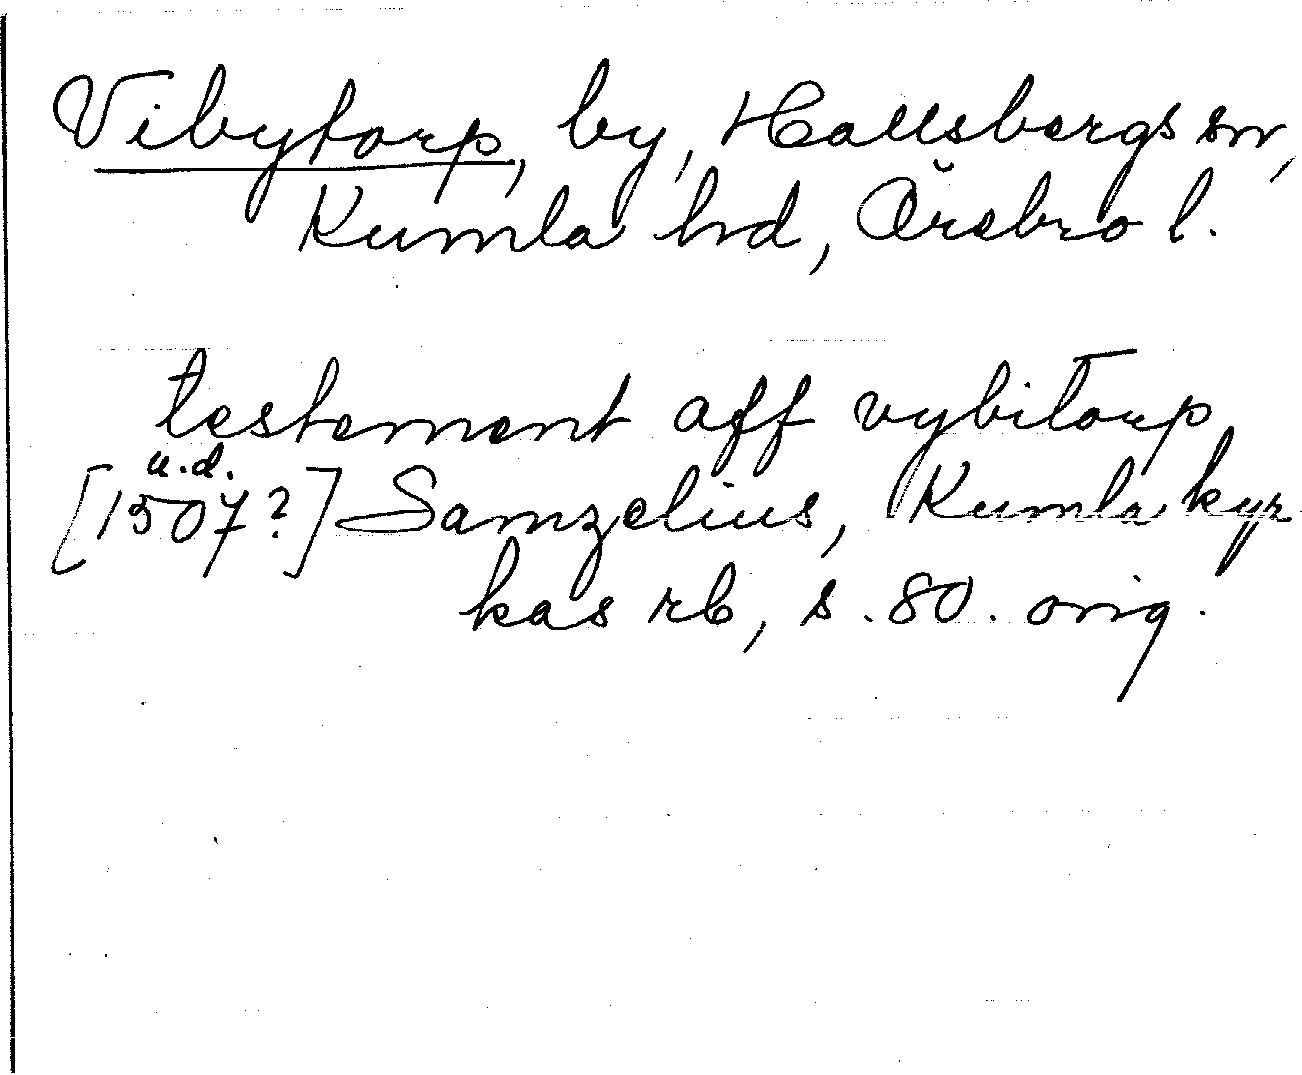 Vibytorp, by, Hallsbergs sn,
Kumla hd, Örebro l.
testement aff vybitorp
u.d.
[1507?] Samzelius, Kumla kyr
kas rb, s. 80. orig.